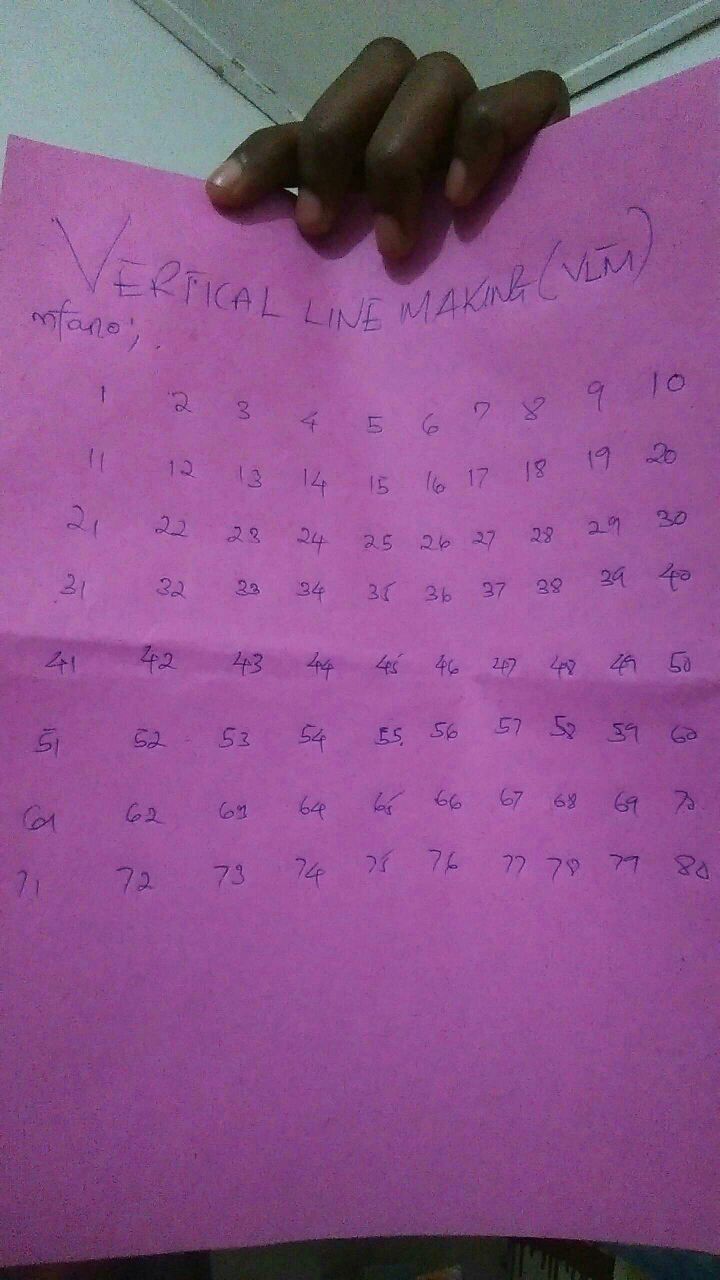 VERTICAL LINE MAKING (VLM)
mfano;.
1 2 3 4 5 6 7 8 9 10
11 12 13 14 15 16 17 18 19 20
21 22 23 24 25 26 27 28 29 30
31 32 33 34 35 36 37 38 39 40
41 42 43 44 45 46 47 48 49 50
51 52 53 54 55. 56 57 58 59 60
61 62 63 64 65 66 67 68 69 70
71 72 73 74 75 76 77 78 79 80